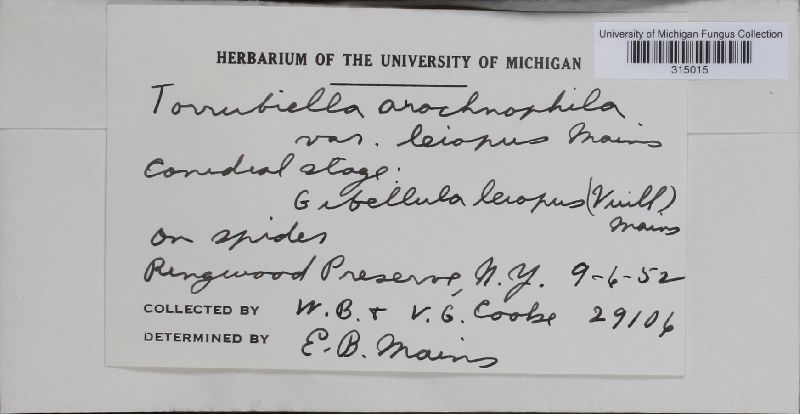 University of Michigan Fungus Collection
315015
HERBARIUM OF THE UNIVERSITY OF MICHIGAN
Torrubiella arachnophila
var. leiopus Mains
Conidial stage:
Gibellula leiopus (Vuill)
Mains
on spider
Ringwood Preserve, N.Y. 9-6-52
COLLECTED BY W. B. + V. G. Cooke 29106
DETERMINED BY E. B. Mains